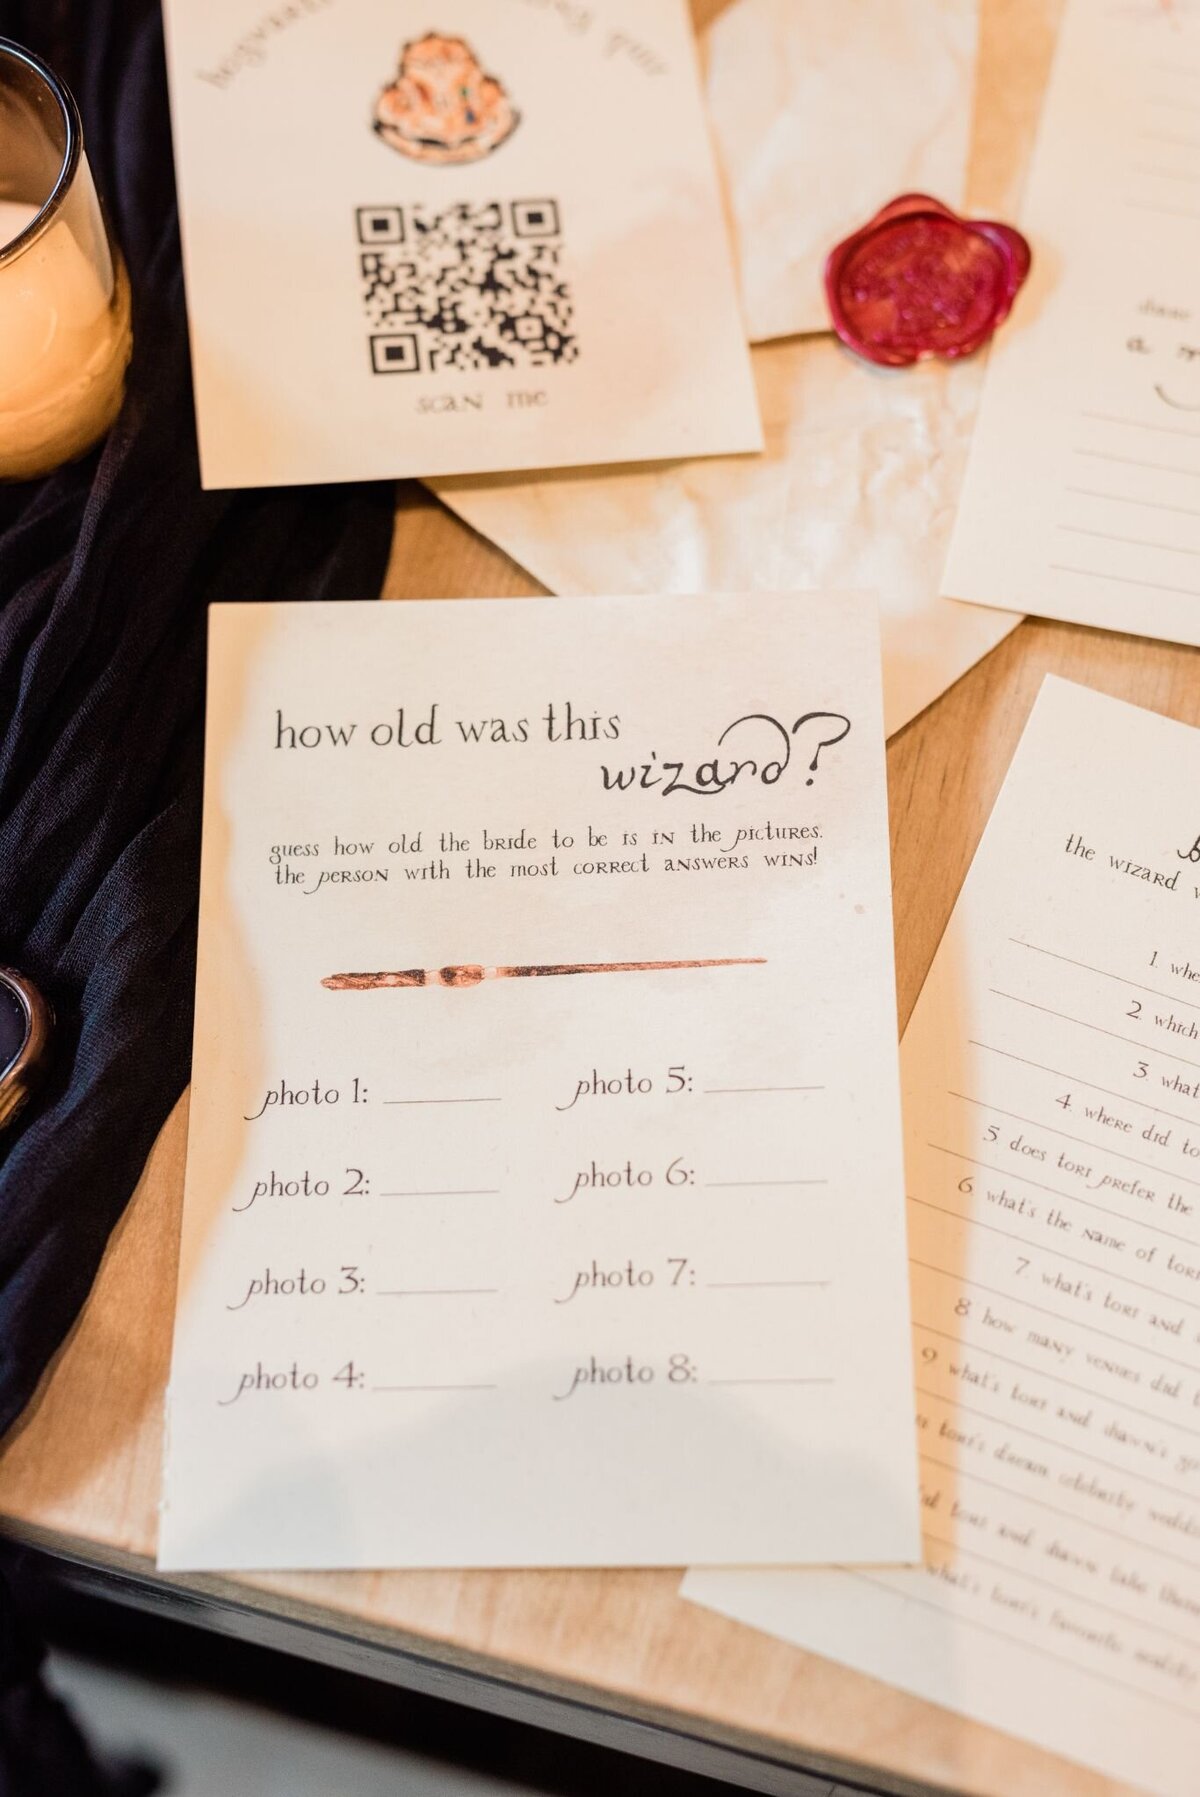 scan me
how old was this
wizard?
guess how old the bride to be is in the pictures.
the person with the most correct answers wins!
photo 1:
photo 2:
photo 3:
photo 4:
photo 5:
photo 6:
photo 7:
photo 8:
a
the wizard
1. whe
2. which
3. what
4. where did to
5. does tori prefer the
6. what's the name of tori
7. what's tori and
8. how many venues did
9. what's tori and dawn's
tori's dream celebrity
tori and dawn take
what's tori's favorite